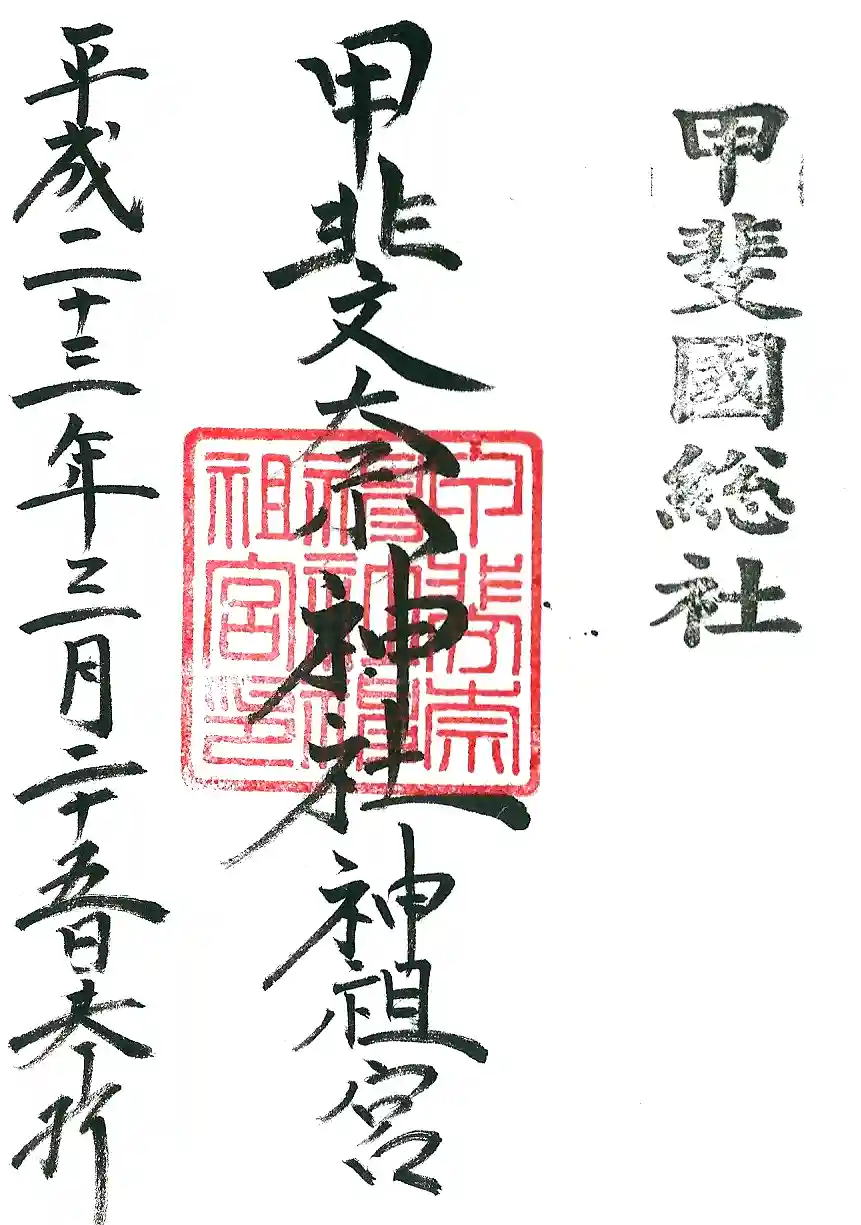 甲斐國総社
甲斐奈神社神祖宮
平成二十三年三月二十五日奉拝
甲斐
祖宮印